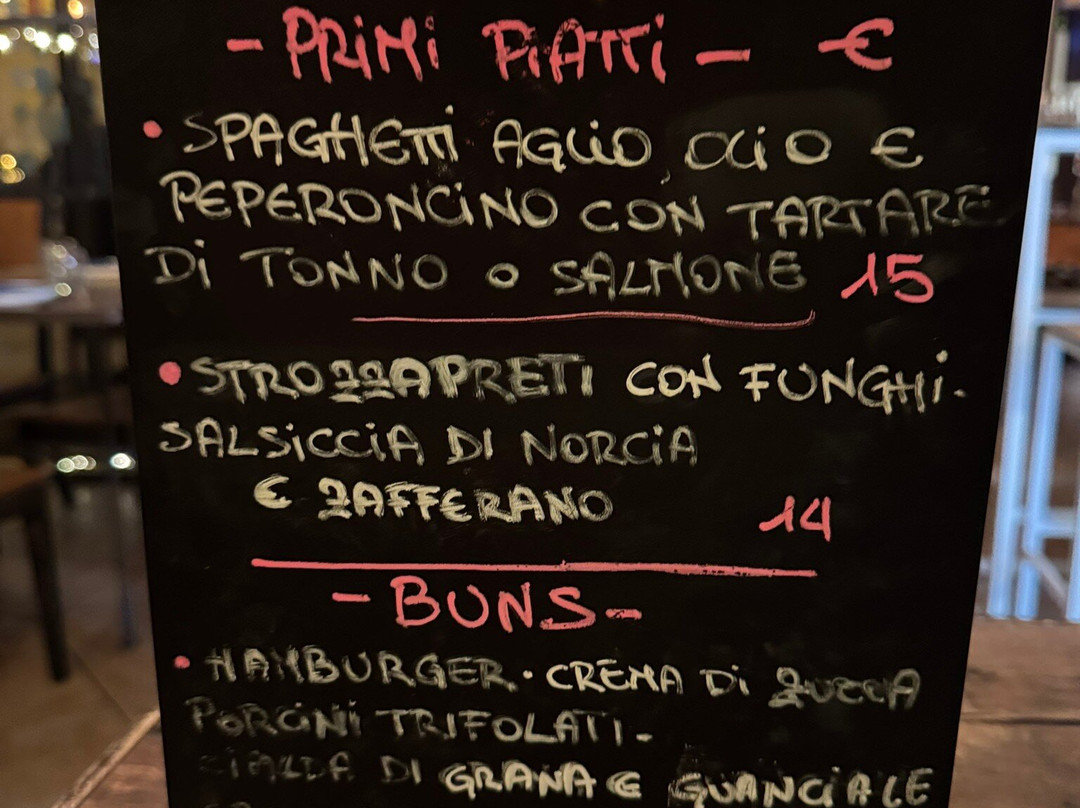 - PRiMi PiATTi - €
• SPAGHETTi AGLiO, OLiO E
PEPERONCiNO CON TARTARE
Di TONNO o SALMONE 15
• STROZZAPRETI CON FUNGHi.
SALSiCCiA DI NORCiA
E ZAFFERANO 14
- BUNS -
• HAMBURGER. CREMA Di ZUCCA
PORCiNi TRIFOLATI.
CIALDA DI GRANA E GUANCIALE